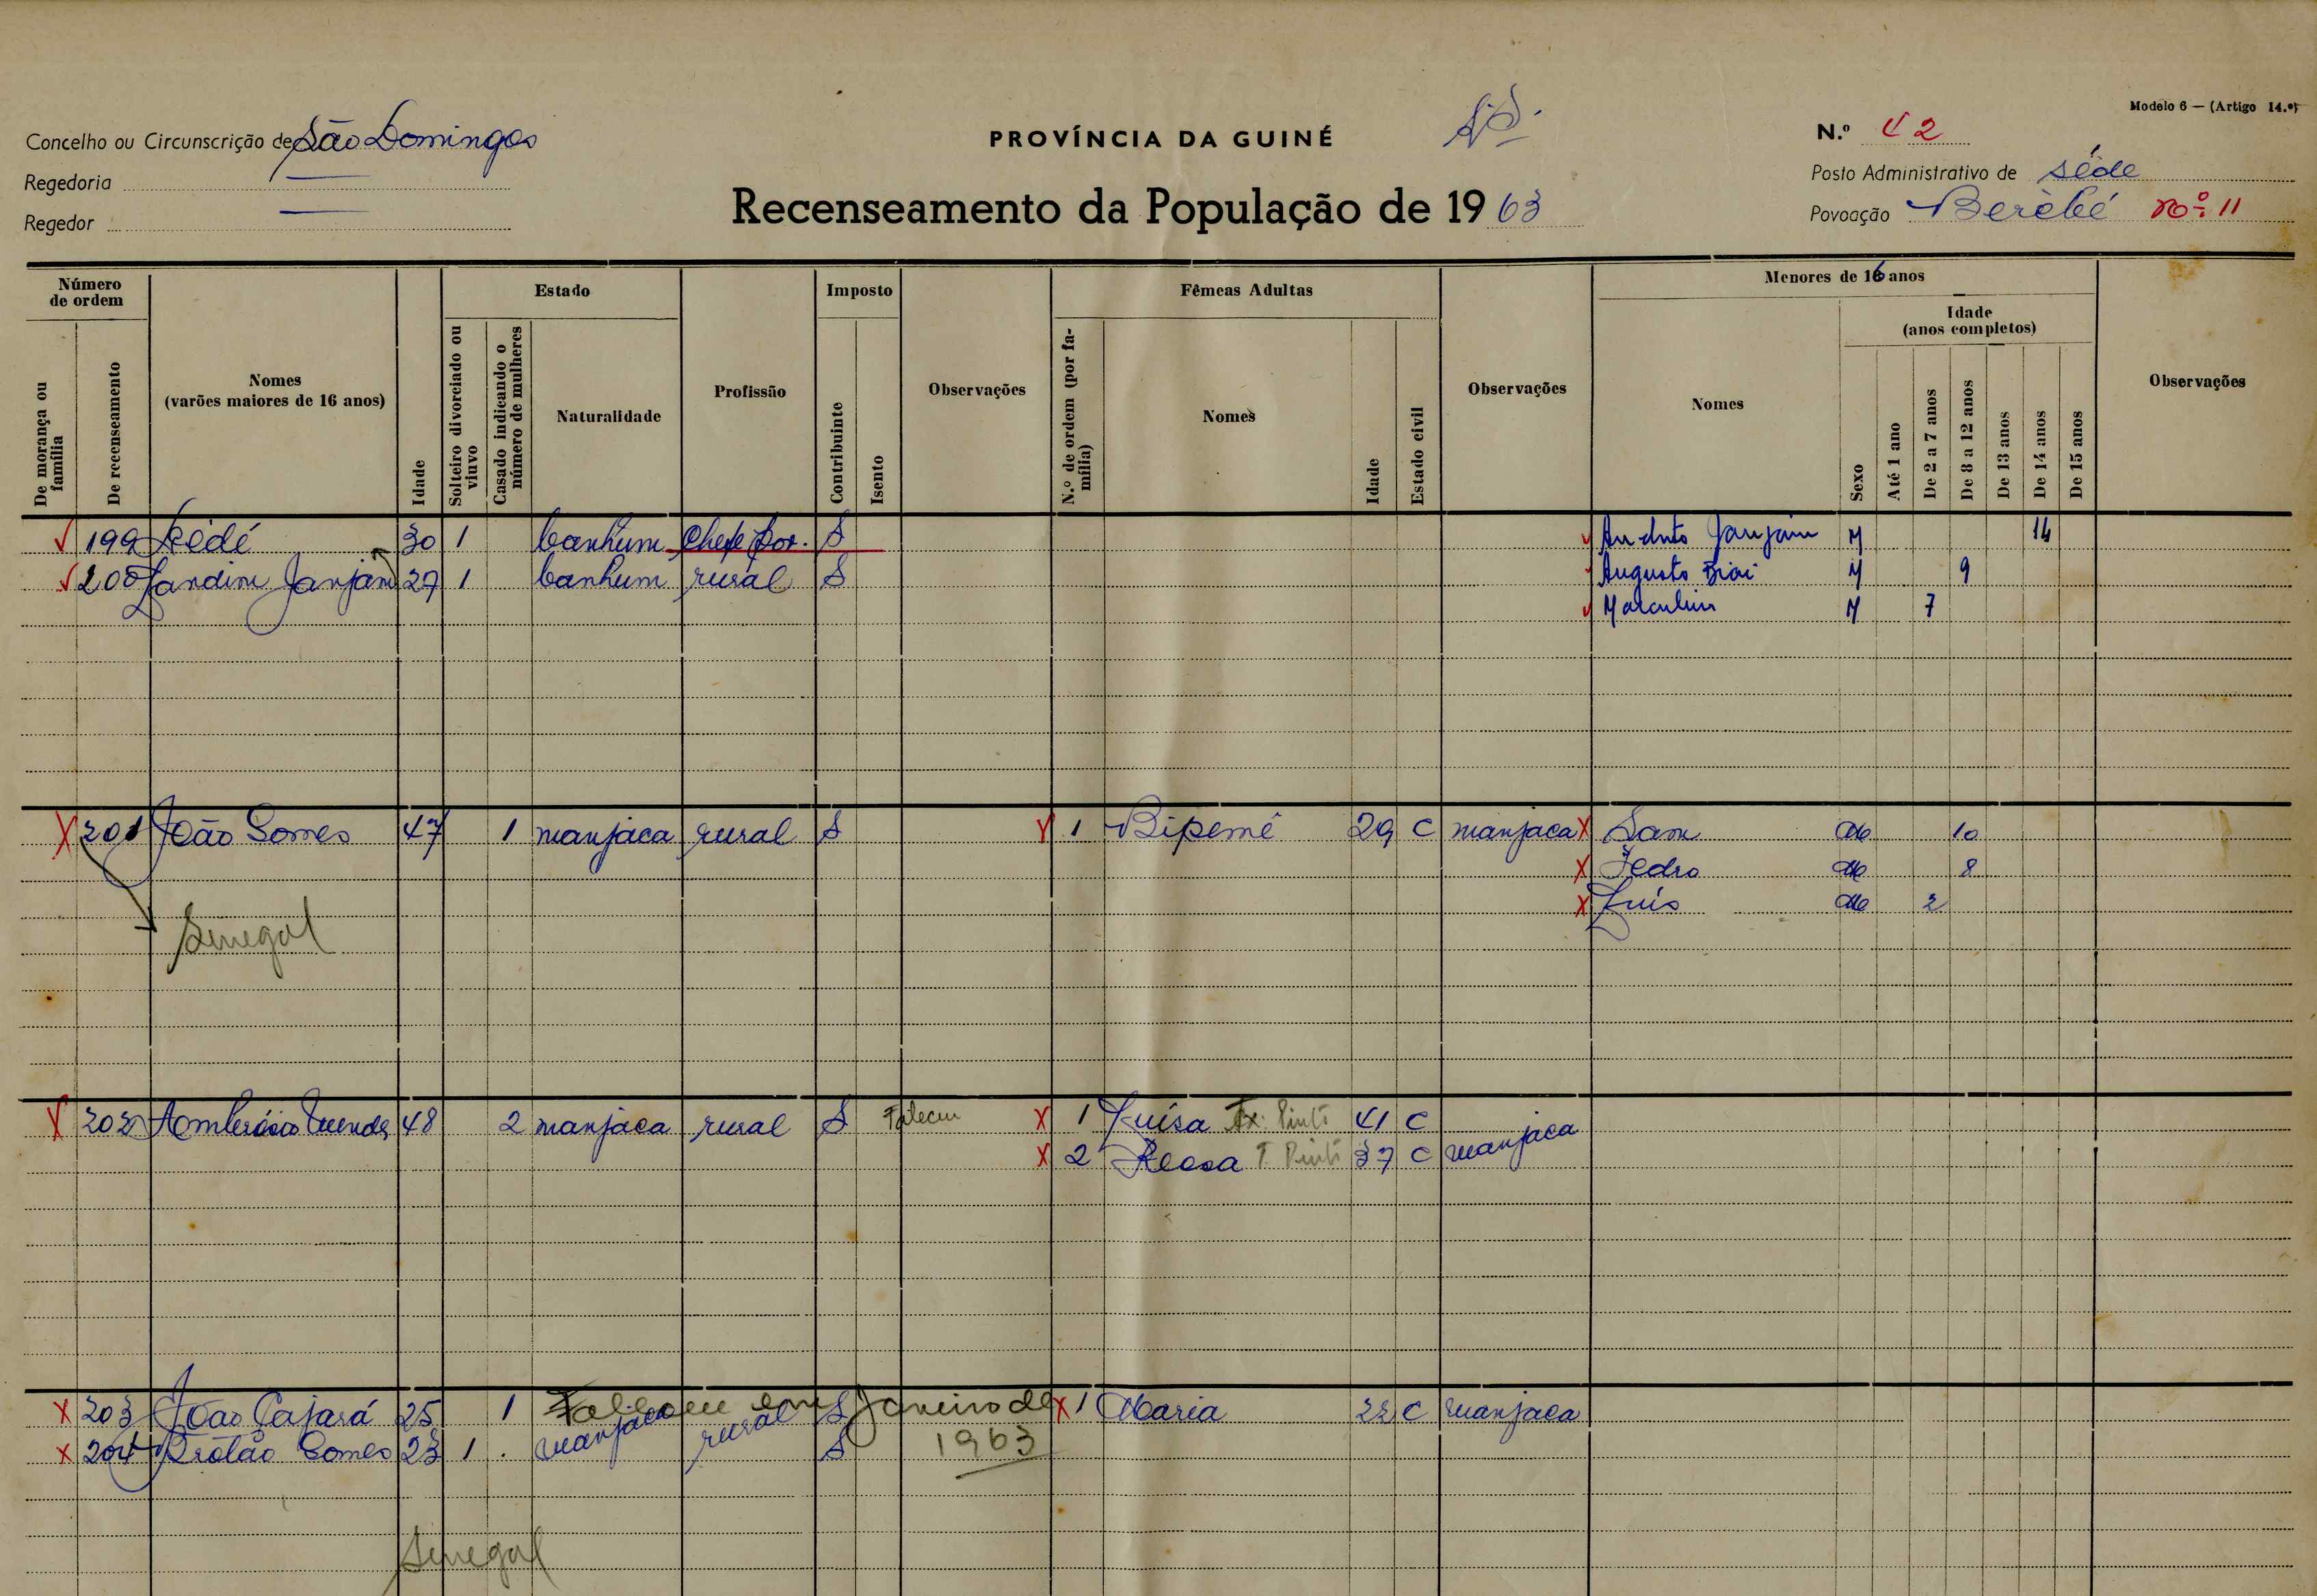 Modelo 6 — (Artigo 14.º)
Concelho ou Circunscrição de São Domingos
PROVÍNCIA DA GUINÉ
N.º 42
Regedoria —
Posto Administrativo de séde
Regedor —
Recenseamento da População de 1963
Povoação Berèbé nº 11
Número de ordem
Estado
Imposto
Fêmeas Adultas
Menores de 16 anos
Idade
(anos completos)
De morança ou família
De recenseamento
Nomes
(varões maiores de 16 anos)
Idade
Solteiro divorciado ou viuvo
Casado indicando o número de mulheres
Naturalidade
Profissão
Contribuinte
Isento
Observações
N.º de ordem (por família)
Nomes
Idade
Estado civil
Observações
Nomes
Sexo
Até 1 ano
De 2 a 7 anos
De 8 a 12 anos
De 13 anos
De 14 anos
De 15 anos
Observações
199 30 1 banhum Chefe S Janjam M 14
200 Jandim Janjam 27 1 banhum rural S Augusto M 9
M 7
201 João Gomes 47 1 manjaca rural S 1 Bipemé 29 C manjaca Sam M 10
Pedro M 8
Luís M 2
Senegal
202 Ambrósio Mendes 48 2 manjaca rural S Faleceu 1 Luísa 41 C
2 37 C manjaca
203 João Cajará 25 1 manjaca rural S Faleceu em Janeiro de 1963 1 Maria 22 C manjaca
204 Gomes 23 1 manjaca rural S
Senegal